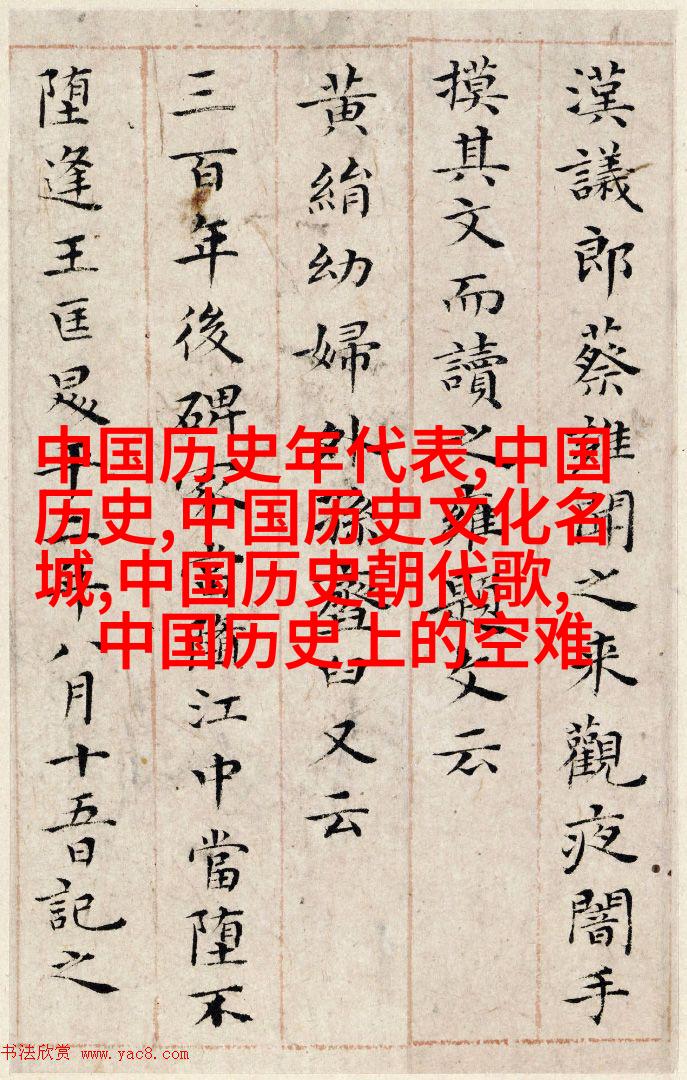 漢議郎蔡雍聞之来觀夜闇手
摸其文而讀之雍題文云
黄絹幼婦外孫齏臼又云
三百年後碑冢當墮江中當墮不
墮逢王匡昇平二年八月十五日記之
中国历史年代表,中国
历史,中国历史文化名
城,中国历史朝代歌,
中国历史上的空难
书法欣赏 www.yac8.com